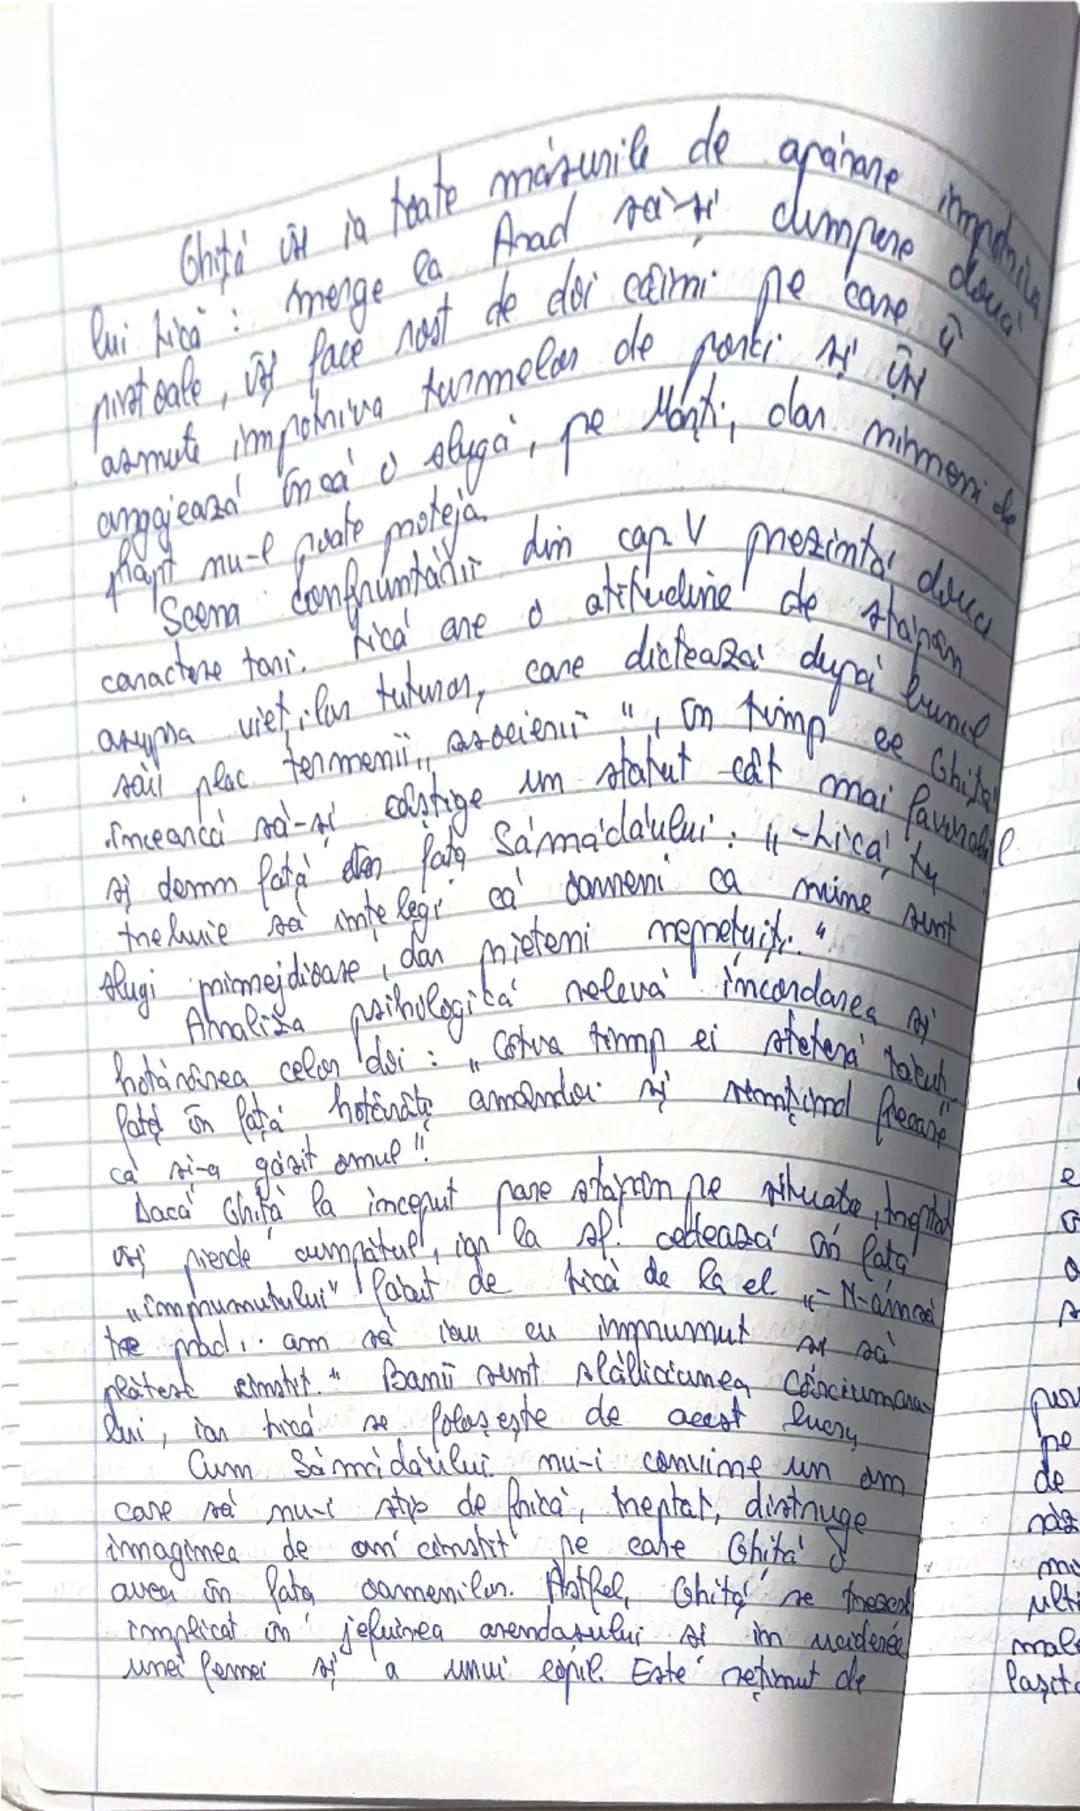 Ghiță își ia toate măsurile de apărare împotriva
lui Lică : merge la Arad să-și cumpere două
pistoale, își face rost de doi câimi pe care îi
asmute împotriva turmelor de porci și își
angajează încă o slugă, pe Marți, dar nimeni de
fapt nu-l poate proteja.
Scena confruntării din cap V prezintă două
caractere tari. Lică are o atitudine de stăpân
asupra vieților tuturor, care dictează după bunul
său plac termenii „asocierii", în timp ce Ghiță
încearcă să-și câștige un statut cât mai favorabil
și demn față în fața Sămădăului: „-Lică, tu
trebuie să înțelegi că oameni ca mine sunt
slugi primejdioase, dar prieteni neprețuiți."
Analiza psihologică relevă încordarea și
hotărârea celor doi : „Câtva timp ei steteră tăcuți
față în față hotărâți amândoi și simțind fiecare
că și-a găsit omul".
Dacă Ghiță la început pare stăpân pe situație, treptat
își pierde cumpătul, iar la sf. cedează în fața
„împrumutului" făcut de Lică de la el „- N-am să
te prad, am să iau eu împrumut și să
plătesc cinstit." Banii sunt slăbiciunea cârciumaru-
lui, iar Lică se folosește de acest lucru
Cum Sămădăului nu-i convine un om
care să nu-i știe de frică, treptat, distruge
imaginea de om cinstit pe care Ghiță o
avea în fața oamenilor. Astfel, Ghiță se trezește
implicat în jefuirea arendașului și în uciderea
unei femei și a unui copil. Este reținut de